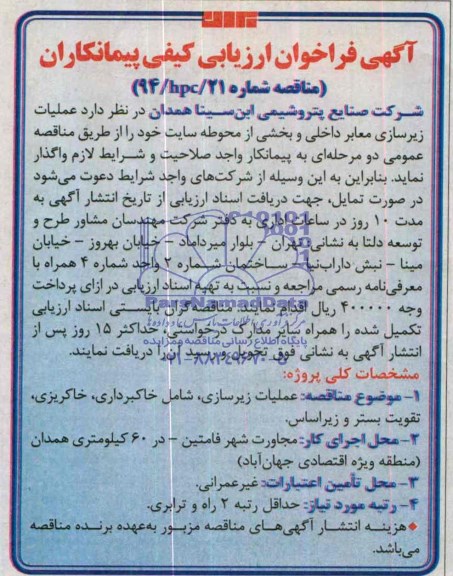 آگهی فراخوان ارزیابی کیفی پیمانکاران
(مناقصه شماره ۹۴/hpc/۲۱)
شرکت صنایع پتروشیمی ابن‌سینا همدان در نظر دارد عملیات
زیرسازی معابر داخلی و بخشی از محوطه سایت خود را از طریق مناقصه
عمومی دو مرحله‌ای به پیمانکار واجد صلاحیت و شرایط لازم واگذار
نماید. بنابراین به این وسیله از شرکت‌های واجد شرایط دعوت می‌شود
در صورت تمایل، جهت دریافت اسناد ارزیابی از تاریخ انتشار آگهی به
مدت ۱۰ روز در ساعات اداری به دفتر شرکت مهندسان مشاور طرح و
توسعه دلتا به نشانی تهران - بلوار میرداماد - خیابان بهروز - خیابان
مینا - نبش داراب‌نیا - ساختمان شماره ۲ واحد شماره ۴ همراه با
معرفی‌نامه رسمی مراجعه و نسبت به تهیه اسناد ارزیابی در ازای پرداخت
وجه ۴۰۰۰۰۰ ریال اقدام نمایند. مناقصه‌گران بایستی اسناد ارزیابی
تکمیل شده را همراه سایر مدارک درخواستی، حداکثر ۱۵ روز پس از
انتشار آگهی به نشانی فوق تحویل و رسید آن را دریافت نمایند.
ParsNamadData
پایگاه اطلاع رسانی مناقصه و مزایده
۰۲۱-۸۸۳۴۹۶۷۰
مشخصات کلی پروژه:
۱- موضوع مناقصه: عملیات زیرسازی، شامل خاکبرداری، خاکریزی،
تقویت بستر و زیراساس.
۲- محل اجرای کار: مجاورت شهر فامنین - در ۶۰ کیلومتری همدان
(منطقه ویژه اقتصادی جهان‌آباد)
۳- محل تأمین اعتبارات: غیرعمرانی.
۴- رتبه مورد نیاز: حداقل رتبه ۲ راه و ترابری.
◆ هزینه انتشار آگهی‌های مناقصه مزبور به‌عهده برنده مناقصه
می‌باشد.